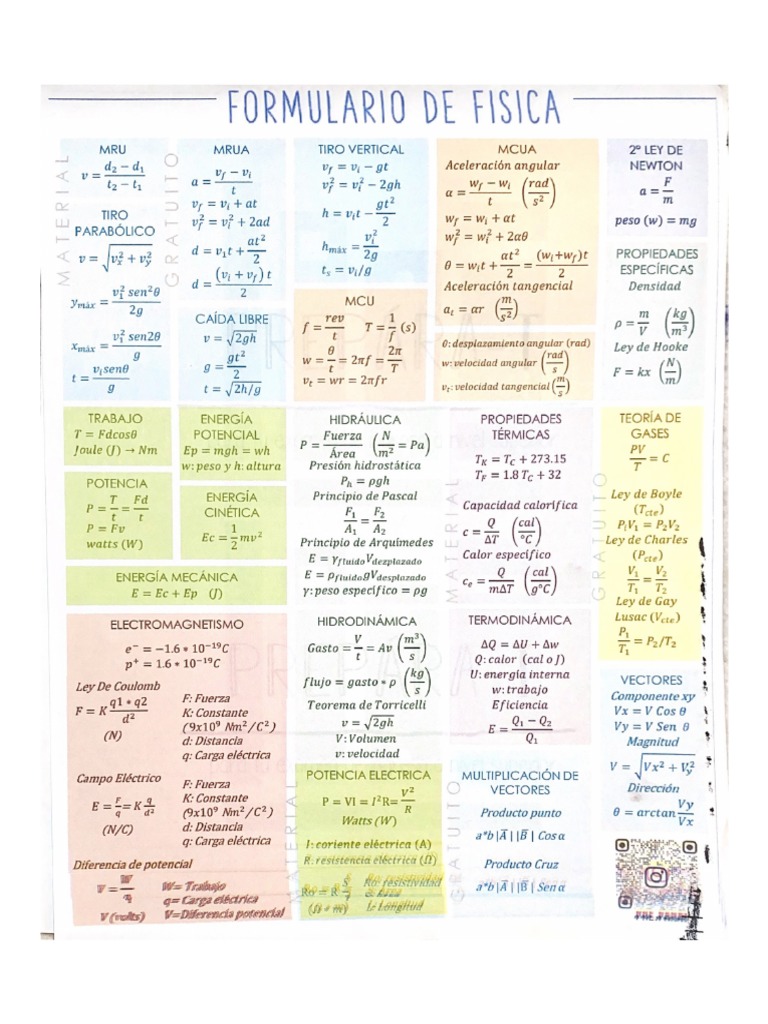 FORMULARIO DE FISICA
MRU
v = (d₂ − d₁)/(t₂ − t₁)
TIRO
PARABÓLICO
v = √(vₓ² + v_y²)
y_máx = v₁² sen²θ / 2g
x_máx = v₁² sen2θ / g
t = vᵢsenθ / g
MRUA
a = (v_f − vᵢ)/t
v_f = vᵢ + at
v_f² = vᵢ² + 2ad
d = v₁t + at²/2
d = (vᵢ + v_f) t / 2
CAÍDA LIBRE
v = √2gh
g = gt²/2
t = √2h/g
TIRO VERTICAL
v_f = vᵢ − gt
v_f² = vᵢ² − 2gh
h = vᵢt − gt²/2
h_máx = vᵢ²/2g
t_s = vᵢ/g
MCU
f = rev/t T = 1/f (s)
w = θ/t = 2πf = 2π/T
v_t = wr = 2πfr
MCUA
Aceleración angular
α = (w_f − wᵢ)/t (rad/s²)
w_f = wᵢ + αt
w_f² = wᵢ² + 2αθ
θ = wᵢt + αt²/2 = (wᵢ+w_f)t/2
Aceleración tangencial
a_t = αr (m/s²)
θ: desplazamiento angular (rad)
w: velocidad angular (rad/s)
v_t: velocidad tangencial (m/s)
2º LEY DE
NEWTON
a = F/m
peso (w) = mg
PROPIEDADES
ESPECÍFICAS
Densidad
ρ = m/V (kg/m³)
Ley de Hooke
F = kx (N/m)
TRABAJO
T = Fdcosθ
Joule (J) → Nm
POTENCIA
P = T/t = Fd/t
P = Fv
watts (W)
ENERGÍA
POTENCIAL
Ep = mgh = wh
w: peso y h: altura
ENERGÍA
CINÉTICA
Ec = 1/2 mv²
ENERGÍA MECÁNICA
E = Ec + Ep (J)
HIDRÁULICA
P = Fuerza/Área (N/m² = Pa)
Presión hidrostática
P_h = ρgh
Principio de Pascal
F₁/A₁ = F₂/A₂
Principio de Arquímedes
E = γ_fluido V_dezplazado
E = ρ_fluido gV_desplazado
γ: peso específico = ρg
PROPIEDADES
TÉRMICAS
T_K = T_C + 273.15
T_F = 1.8 T_C + 32
Capacidad calorífica
c = Q/ΔT (cal/°C)
Calor específico
c_e = Q/mΔT (cal/g°C)
TEORÍA DE
GASES
PV/T = C
Ley de Boyle
(T_cte)
P₁V₁ = P₂V₂
Ley de Charles
(P_cte)
V₁/T₁ = V₂/T₂
Ley de Gay
Lusac (V_cte)
P₁/T₁ = P₂/T₂
ELECTROMAGNETISMO
e⁻ = −1.6 * 10⁻¹⁹C
p⁺ = 1.6 * 10⁻¹⁹C
Ley De Coulomb
F = K q1 * q2 / d²
(N)
F: Fuerza
K: Constante
(9x10⁹ Nm²/C²)
d: Distancia
q: Carga eléctrica
Campo Eléctrico
E = F/q = K q/d²
(N/C)
F: Fuerza
K: Constante
(9x10⁹ Nm²/C²)
d: Distancia
q: Carga eléctrica
Diferencia de potencial
V = W/q
V (volts)
W= Trabajo
q= Carga eléctrica
V=Diferencia potencial
HIDRODINÁMICA
Gasto = V/t = Av (m³/s)
flujo = gasto * ρ (kg/s)
Teorema de Torricelli
v = √2gh
V: Volumen
v: velocidad
POTENCIA ELECTRICA
P = VI = I²R= V²/R
Watts (W)
I: coriente eléctrica (A)
R: resistencia eléctrica (Ω)
Ro: resistividad
L: Longitud
TERMODINÁMICA
ΔQ = ΔU + Δw
Q: calor (cal o J)
U: energía interna
w: trabajo
Eficiencia
E = (Q₁ − Q₂)/Q₁
MULTIPLICACIÓN DE
VECTORES
Producto punto
a*b |A⃗ | |B⃗ | Cos α
Producto Cruz
a*b |A⃗ | |B⃗ | Sen α
VECTORES
Componente xy
Vx = V Cos θ
Vy = V Sen θ
Magnitud
V = √(Vx² + V_y²)
Dirección
θ = arctan Vy/Vx
MATERIAL
GRATUITO
PREPÁRA T
MATERIAL
GRATUITO
PREPÁRA T
MATERIAL
GRATUITO